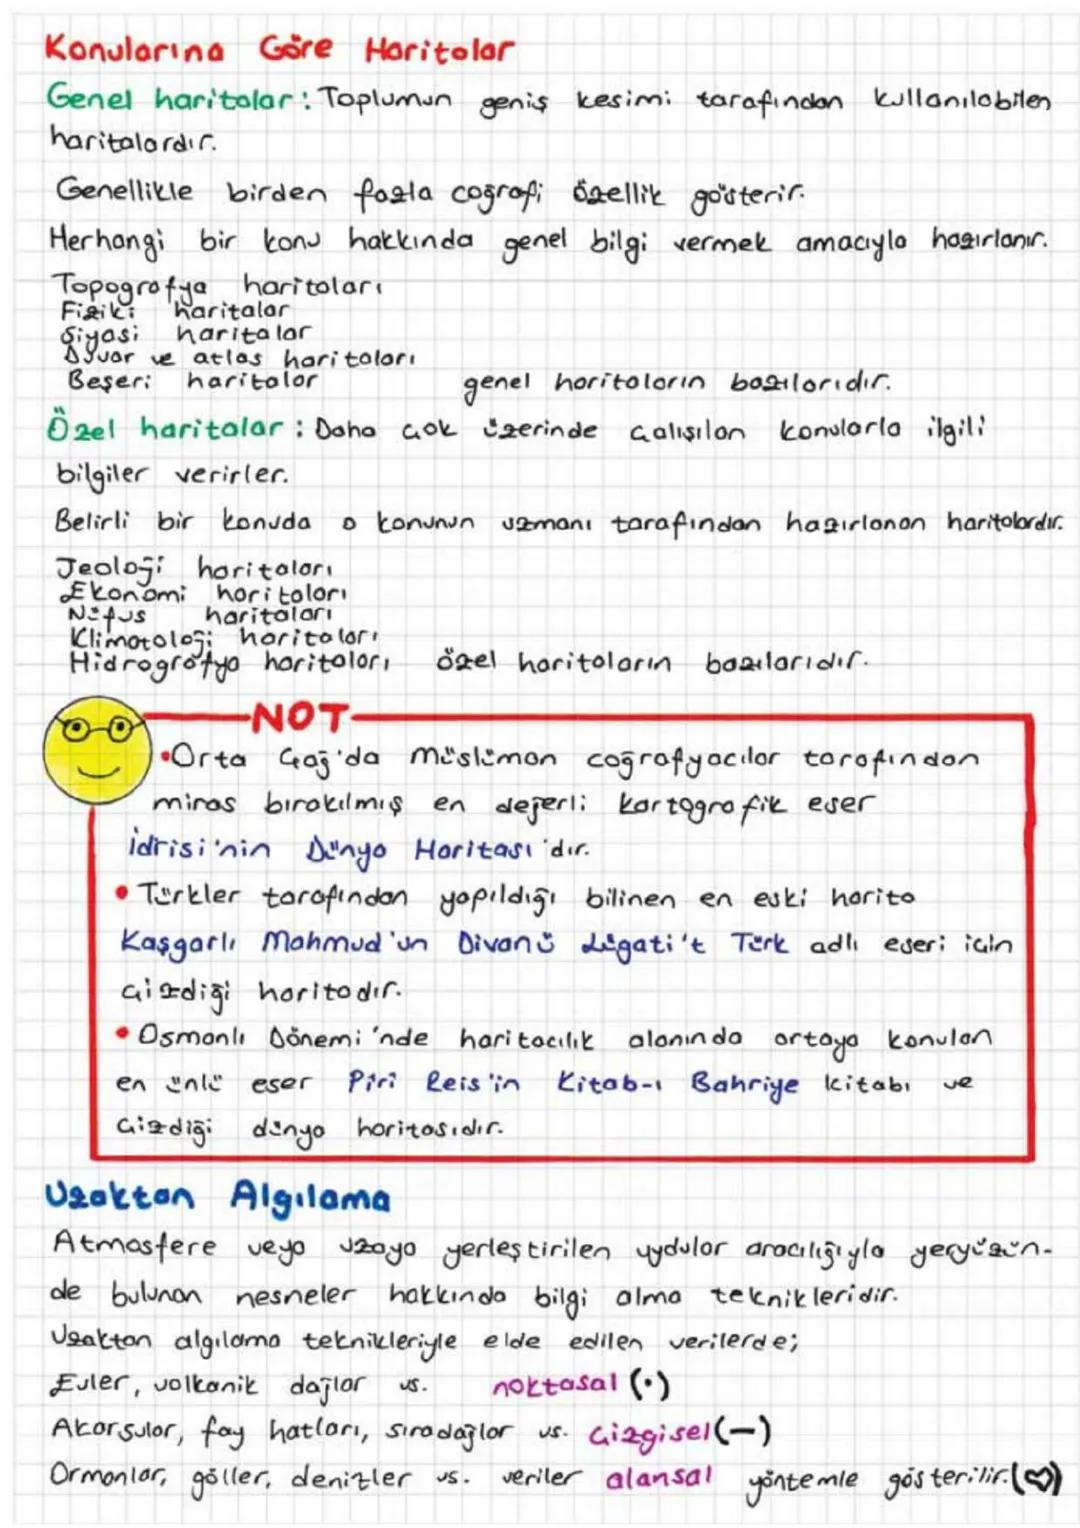 Konularına Göre Haritalar
Genel haritalar: Toplumun geniş kesimi tarafından kullanılabilen
haritalardır.
Genellikle birden fazla coğrafi özellik gösterir.
Herhangi bir konu hakkında genel bilgi vermek amacıyla hazırlanır.
Topografya haritaları
Fiziki haritalar
Siyasi haritalar
Duvar ve atlas haritaları
Beşeri haritalar genel haritaların bazılarıdır.
Özel haritalar: Daha çok üzerinde çalışılan konularla ilgili
bilgiler verirler.
Belirli bir konuda o konunun uzmanı tarafından hazırlanan haritalardır.
Jeoloji haritaları
Ekonomi haritaları
Nüfus haritaları
Klimatoloji haritaları
Hidrografya haritaları özel haritaların bazılarıdır.
NOT
•Orta Çağ'da müslüman coğrafyacılar tarafından
miras bırakılmış en değerli kartografik eser
İdrisi'nin Dünya Haritası'dır.
• Türkler tarafından yapıldığı bilinen en eski harita
Kaşgarlı Mahmud'un Divanü Lügati't Türk adlı eseri için
çizdiği haritadır.
• Osmanlı Dönemi'nde haritacılık alanında ortaya konulan
en ünlü eser Piri Reis'in Kitab-ı Bahriye kitabı ve
çizdiği dünya haritasıdır.
Uzaktan Algılama
Atmosfere veya uzaya yerleştirilen uydular aracılığıyla yeryüzün-
de bulunan nesneler hakkında bilgi alma teknikleridir.
Uzaktan algılama teknikleriyle elde edilen verilerde;
Evler, volkanik dağlar vs. noktasal (•)
Akarsular, fay hatları, sıradağlar vs. çizgisel(—)
Ormanlar, göller, denizler vs. veriler alansal yöntemle gösterilir.()